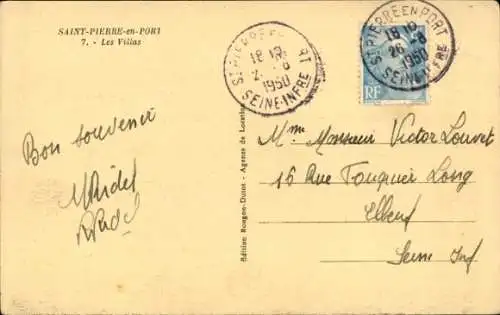 SAINT-PIERRE-en-PORT
7. - Les Villas
Bon souvenir
Edition Rougon-Dunot - Agence de Location
ST PIERRE EN PORT
18 H
2 -8
1950
SEINE-INFRE
ST PIERRE EN PORT
18 H
26 -8
1950
SEINE-INFRE
RF
Mme Monsieur Victor Louvet
16 Rue Fouquier Long
Elbeuf
Seine Inf